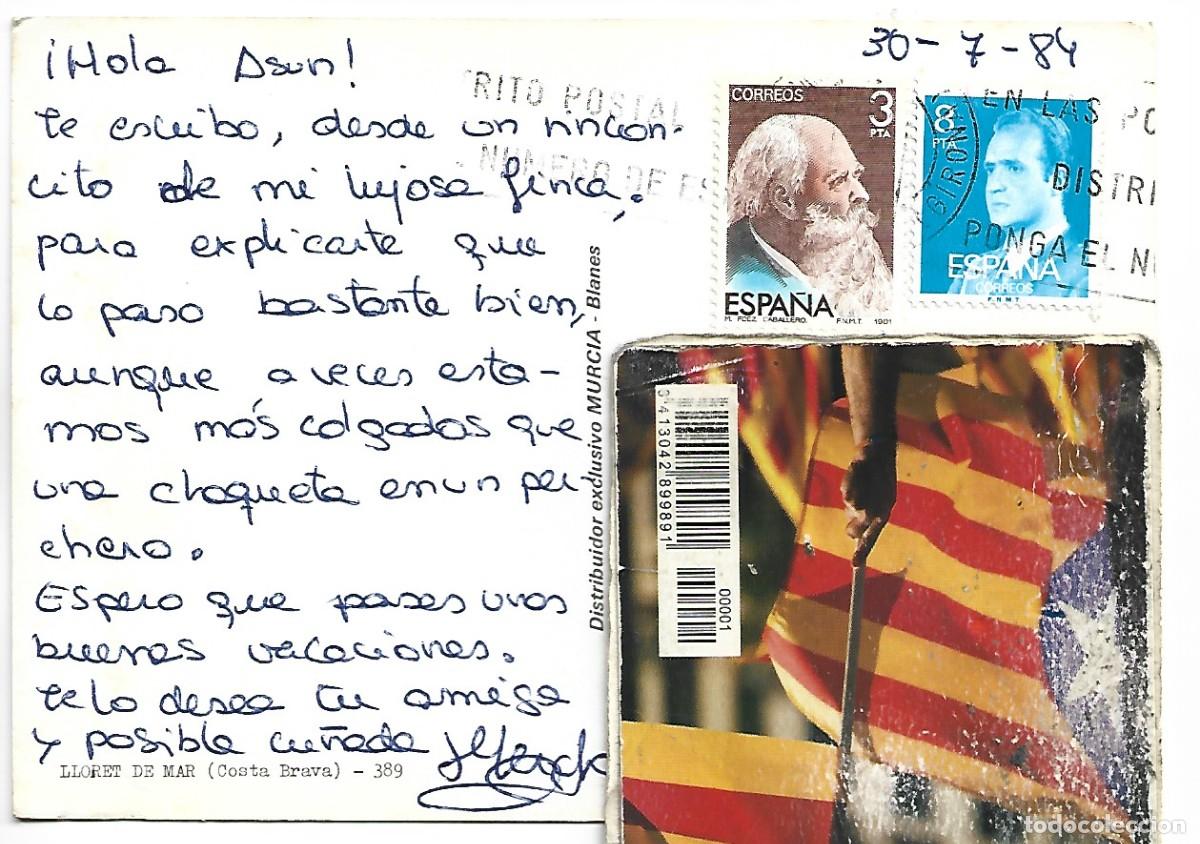 30-7-84
¡Hola Asun!
te escribo, desde un rincon-
cito de mi lujosa finca,
para explicarte que
lo paso bastante bien,
aunque a veces esta-
mos más colgados que
una chaqueta en un per-
chero.
Espero que pases unas
buenas vacaciones.
te lo desea tu amiga
y posible cuñada
LLORET DE MAR (Costa Brava) - 389
Distribuidor exclusivo MURCIA - Blanes
RITO POSTAL
NUMERO DE ES
CORREOS
3
PTA
ESPAÑA
M. FDEZ. CABALLERO. F.N.M.T. 1981
8
PTA
ESPAÑA
CORREOS
F.N.M.T.
EN LAS PO
DISTRI
PONGA EL N
9 413042 899891
00001
todocoleccion